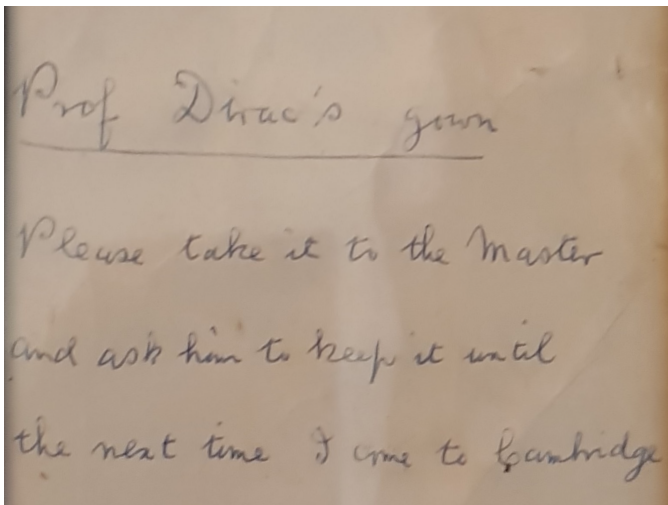 Prof Dirac's gown
Please take it to the Master
and ask him to keep it until
the next time I come to Cambridge